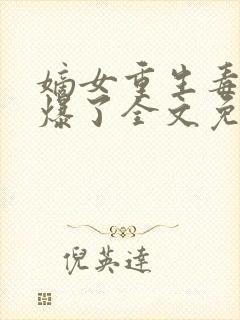 嫡女重生毒
爆了全文免
倪英達